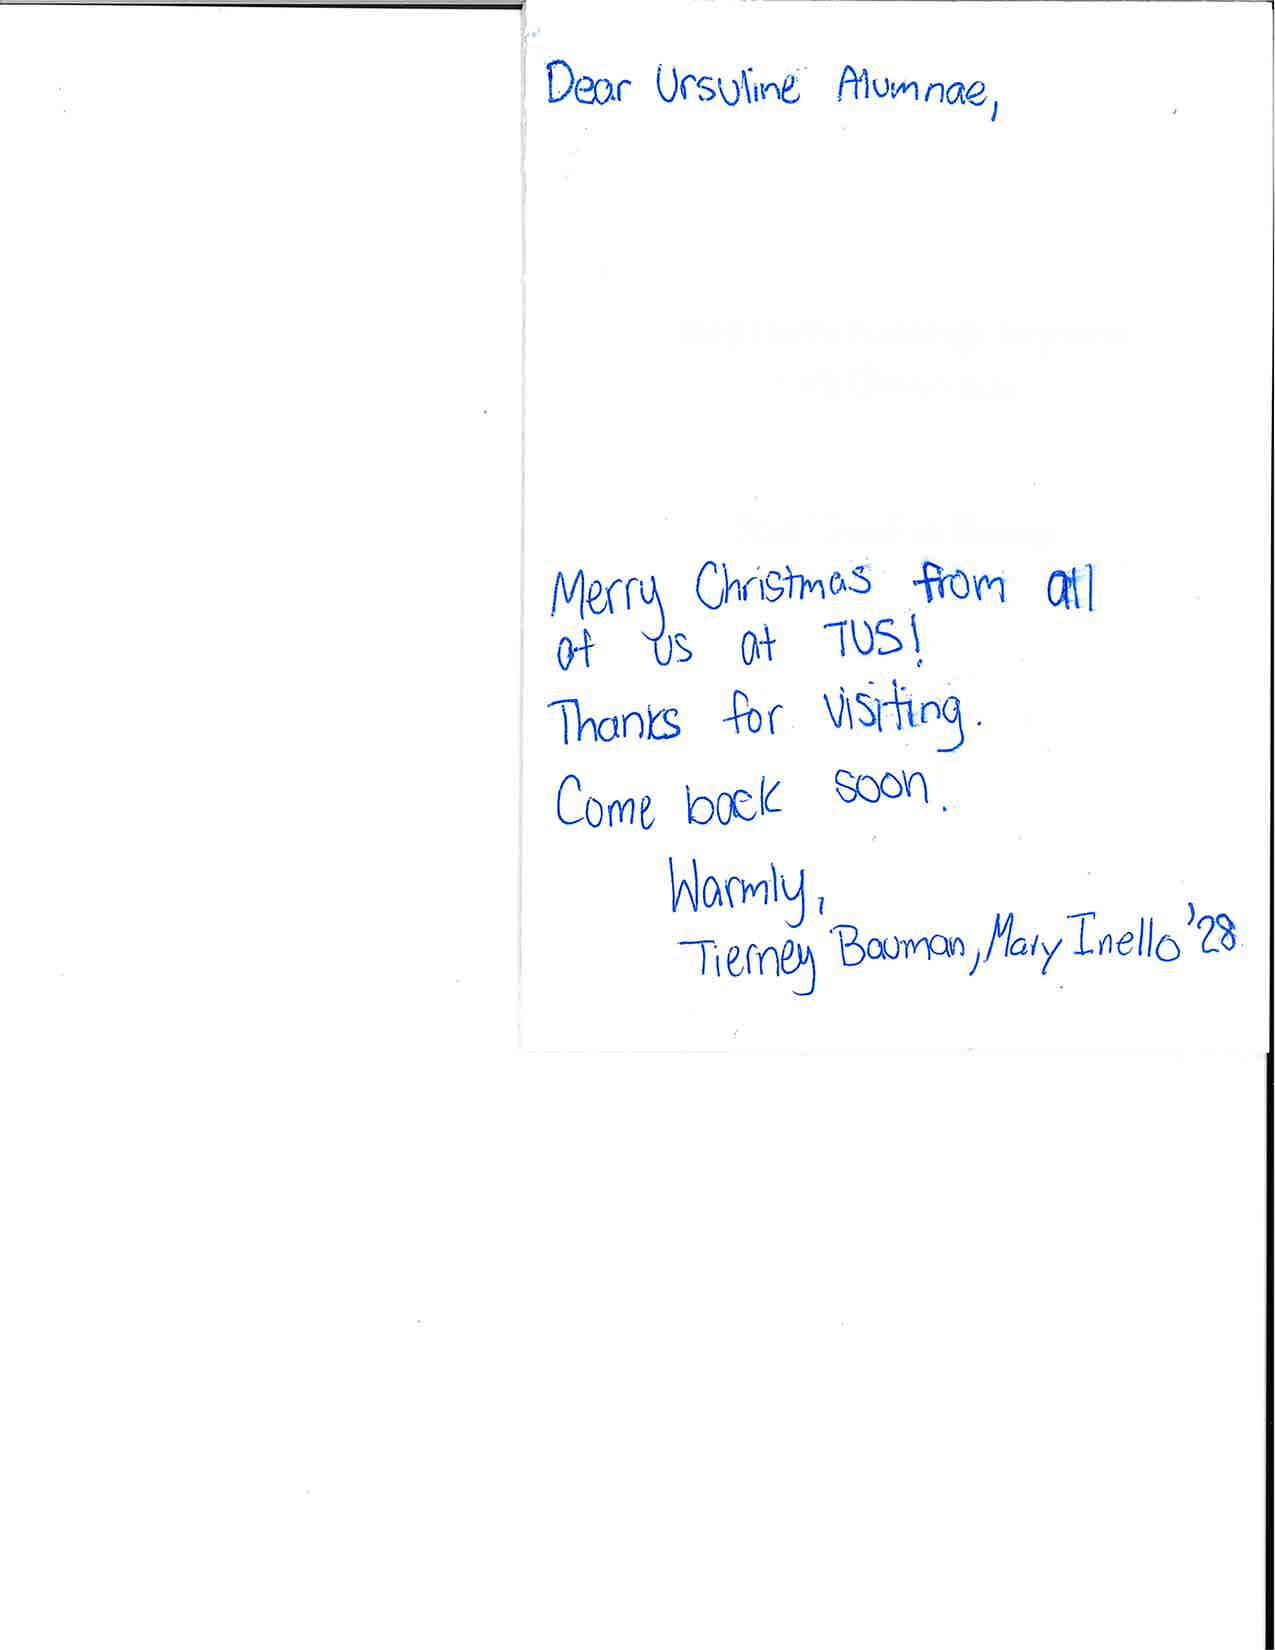 Dear Ursuline Alumnae,
Merry Christmas from all
of us at TUS!
Thanks for visiting.
Come back soon.
Warmly,
Tierney Bauman, Mary Inello '28